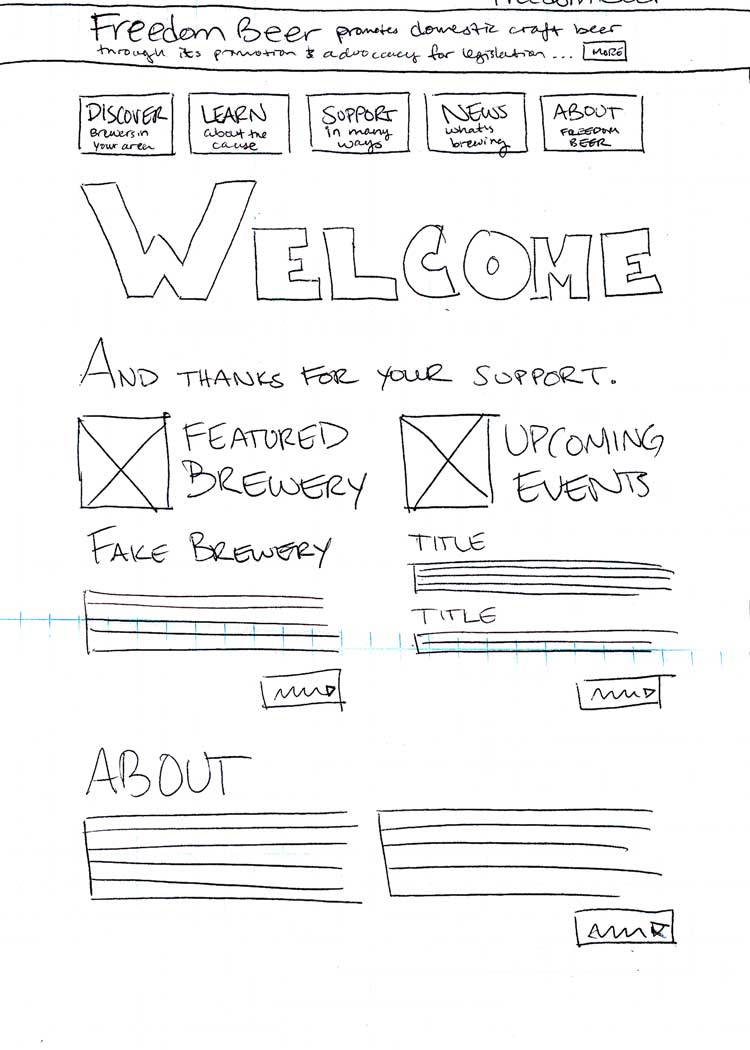 Freedom Beer promotes domestic craft beer
through its promotion & advocacy for legislation... MORE
DISCOVER
Brewers in
your area
LEARN
about the
cause
SUPPORT
in many
ways
NEWS
what's
brewing
ABOUT
FREEDOM
BEER
WELCOME
AND THANKS FOR YOUR SUPPORT.
FEATURED
BREWERY
UPCOMING
EVENTS
FAKE BREWERY
TITLE
TITLE
ABOUT